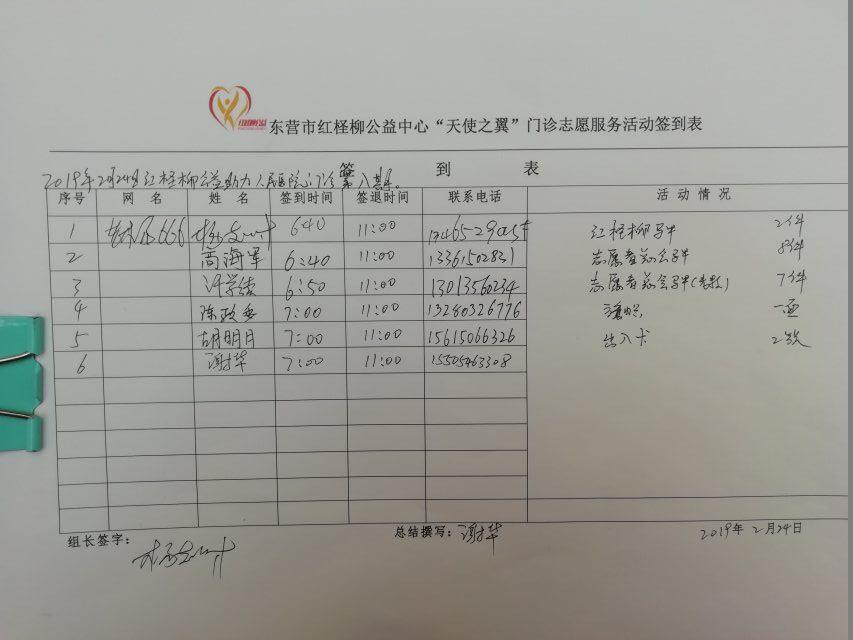 东营市红柽柳公益中心“天使之翼”门诊志愿服务活动签到表
签 到 表
2019年2月24日红柽柳公益助力人民医院门诊第八基年。
序号 网 名 姓 名 签到时间 签退时间 联系电话 活 动 情 况
1 666 640 11:00 红柽柳马甲 2件
2 高海军 6:40 11:00 13361502831 志愿者总会马甲 8件
3 许学绩 6:50 11:00 13013560234 志愿者总会马甲(老款) 7件
4 陈政委 7:00 11:00 13280326776 一面
5 胡明月 7:00 11:00 15615066326 出入卡 2张
6 谢华 7:00 11:00 15505463308
组长签字: 总结撰写:谢华 2019年2月24日